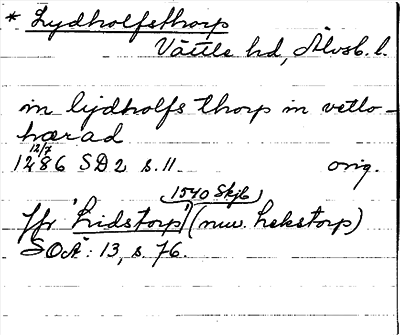 * Lydholfsthorp
Vättle hd, Älvsb. l.
in lydholfs thorp in vetlo-
hærad
12/7
1286 SD 2 s. 11. orig.
1540 Skjb
Jfr 'Lidstorp' (nuv. Lekstorp)
SOÄ: 13, s. 76.